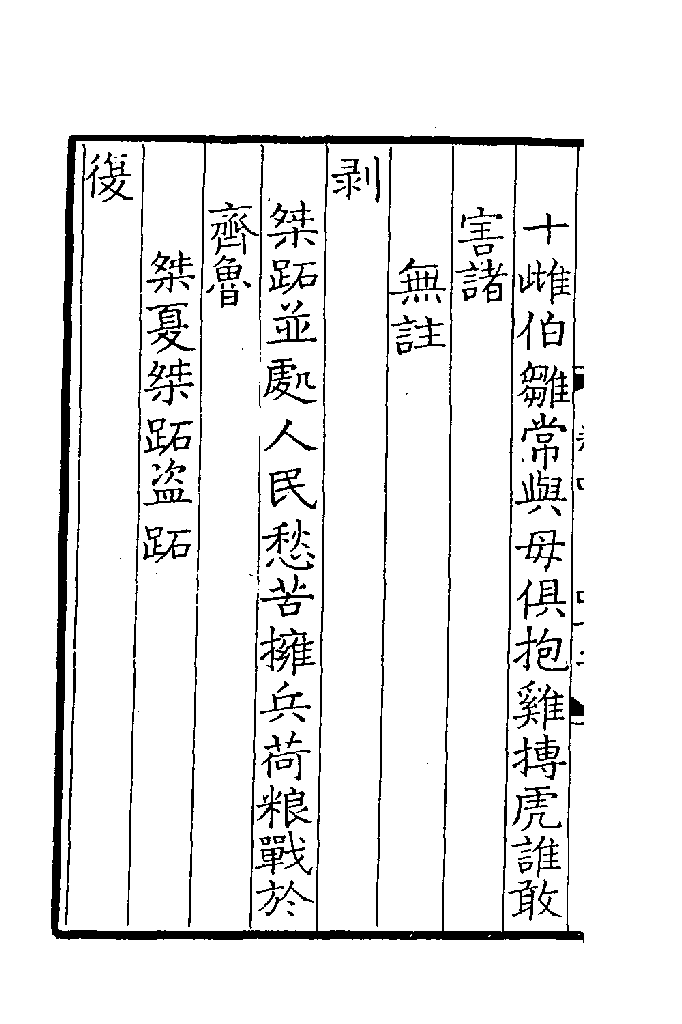 十雌伯雛常與母俱抱雞搏虎誰敢
害諸
無註
剥
桀跖並處人民愁苦擁兵荷粮戰於
齊魯
桀夏桀跖盗跖
復